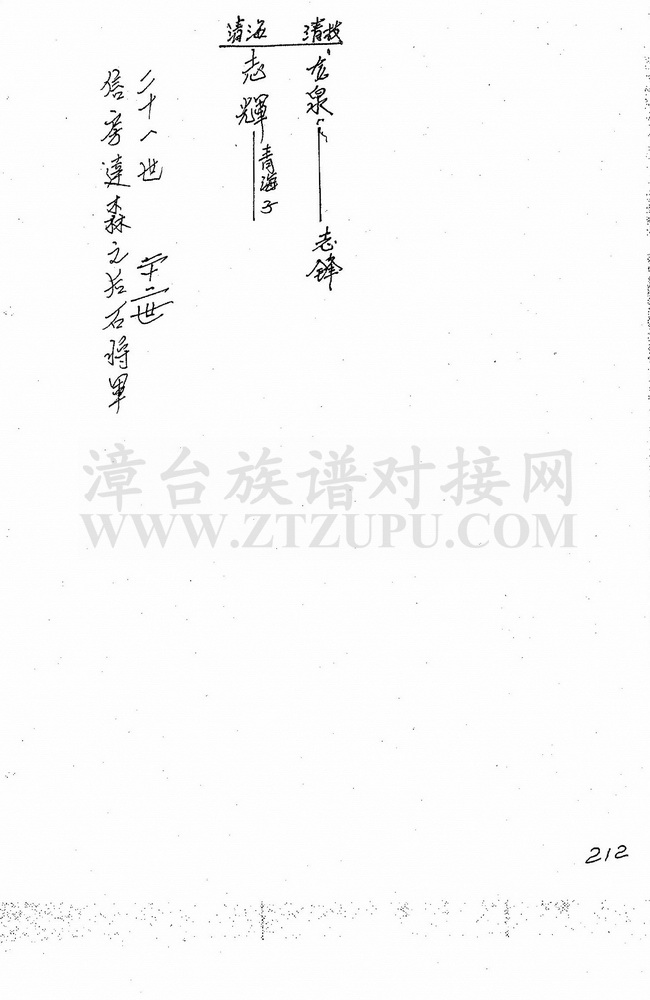 清技 清海
泉
志鋒
志輝
青海子
二十八世 二十二世
信房達森之后石將軍
漳台族谱对接网
WWW.ZTZUPU.COM
212